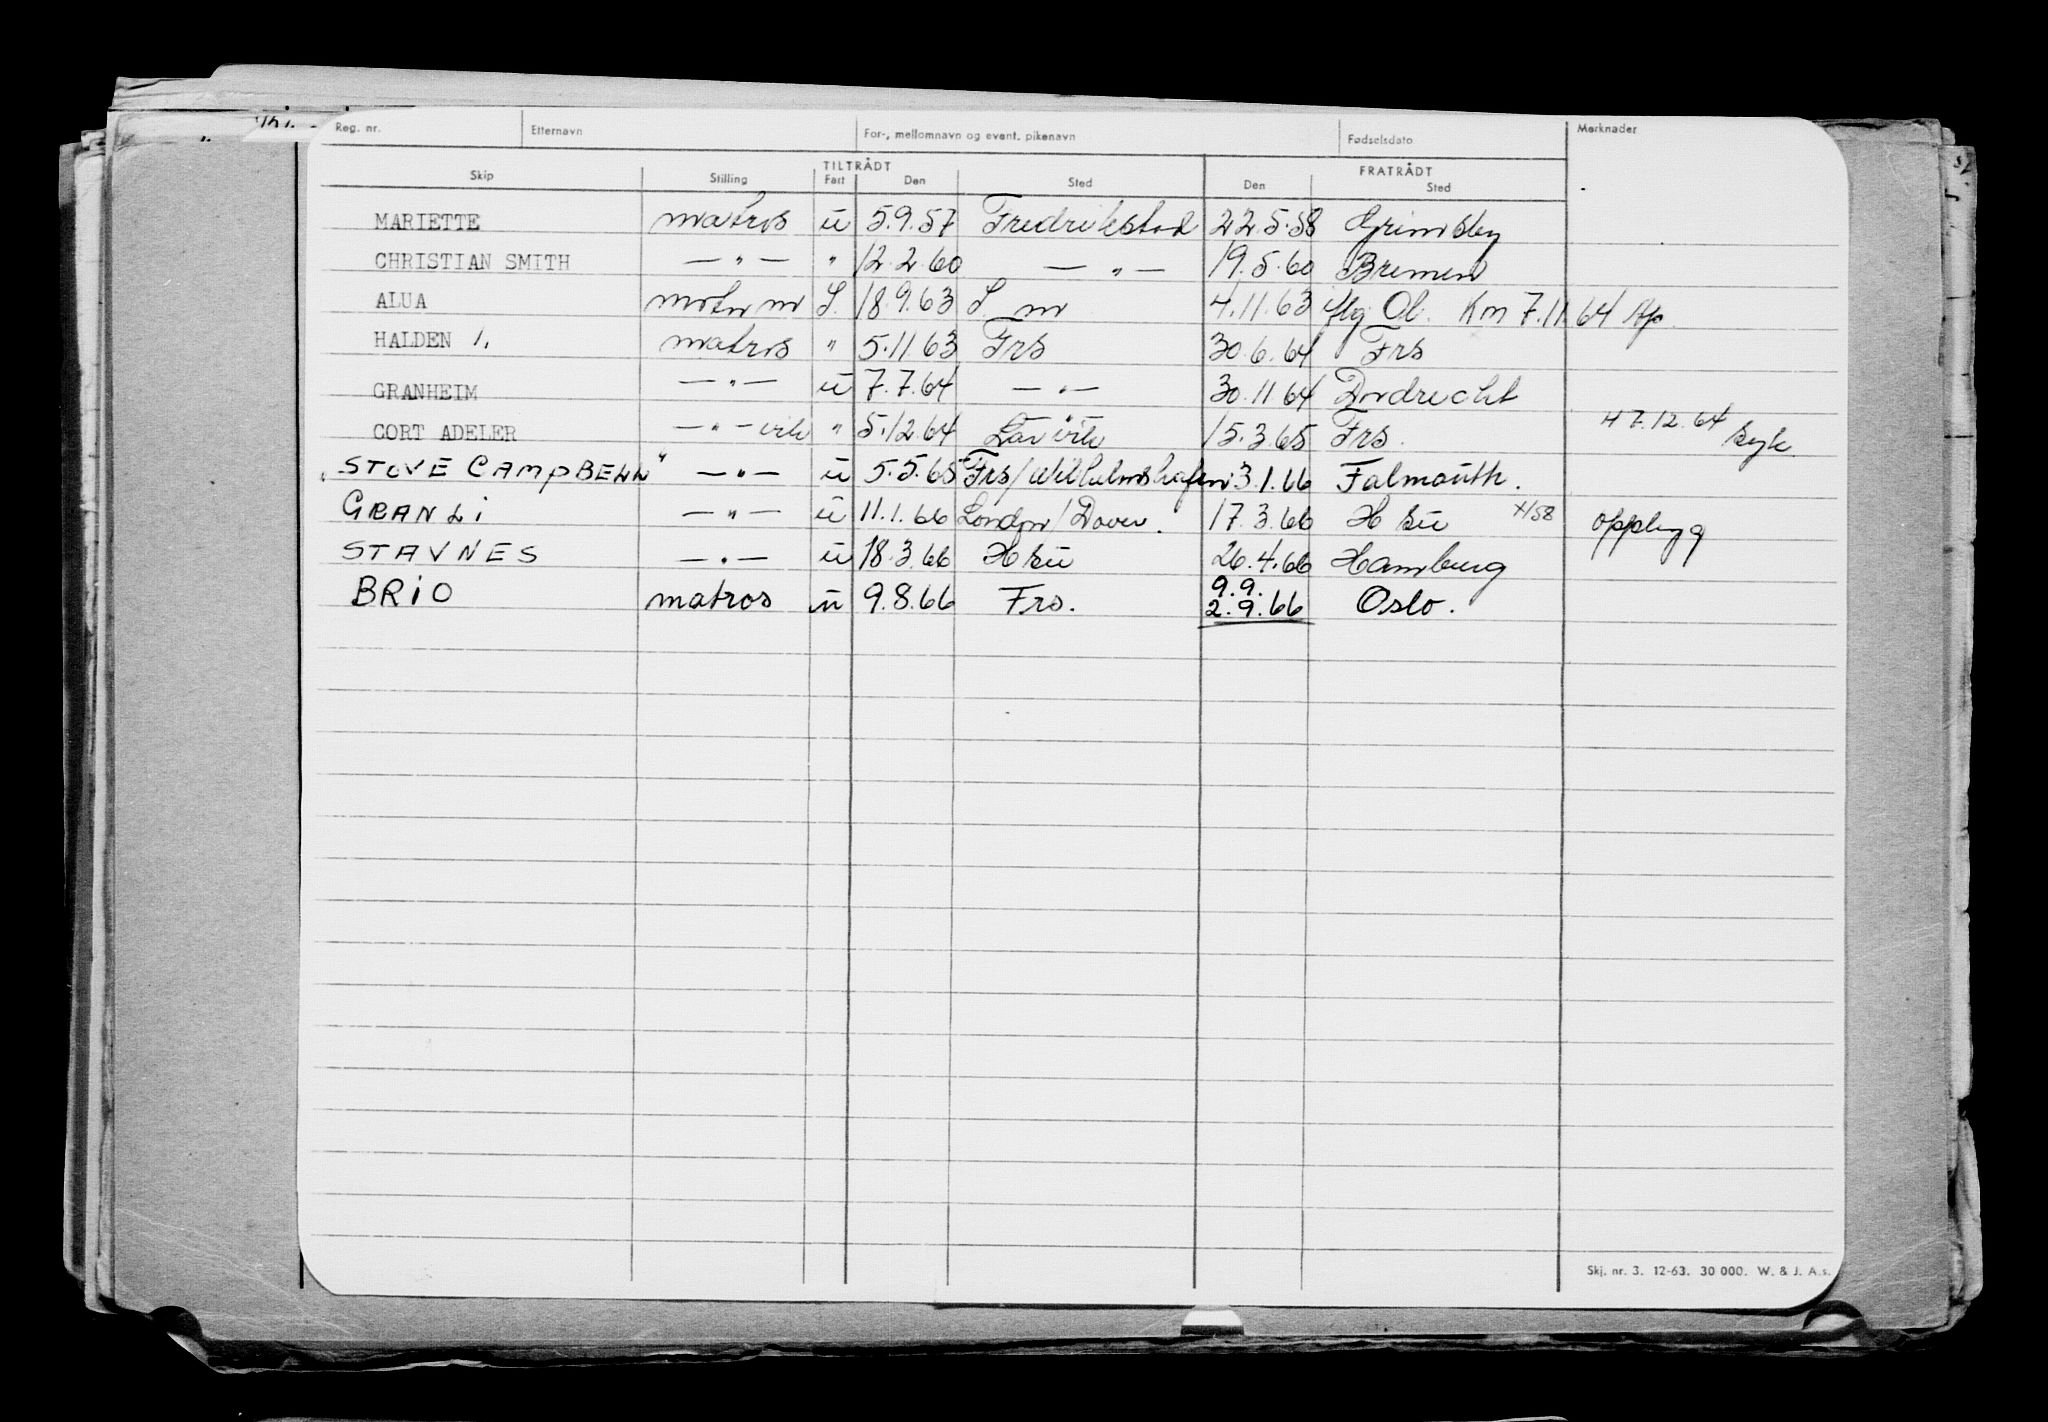 Reg. nr. Etternavn For-, mellomnavn og event. pikenavn Fødselsdato Merknader
TILTRÅDT FRATRÅDT
Skip Stilling Fart Den Sted Den Sted
MARIETTE matros u 5.9.57 Fredrikstad 22.5.58 Grimsby
CHRISTIAN SMITH — " — " 12.2.60 — " — 19.5.60 Bremen
ALUA S. 18.9.63 S. 4.11.63 Km 7.11.64
HALDEN 1. matros " 5.11.63 Frs 30.6.64 Frs
GRANHEIM — " — u 7.7.64 — " — 30.11.64 Dordrecht
CORT ADELER — " — vik " 5.12.64 Larvik 15.3.65 Frs. 7.12.64 syk
"STOVE CAMPBELL" — " — u 5.5.65 Frs/Wilhelmshafen 3.1.66 Falmouth.
GRANLI — " — u 11.1.66 London/Dover. 17.3.66 H su X/58 opplygg
STAVNES — " — u 18.3.66 H su 26.4.66 Hamburg
BRIO matros u 9.8.66 Frs. 9.9. 2.9.66 Oslo.
Skj. nr. 3. 12-63. 30 000. W. & J. A.s.